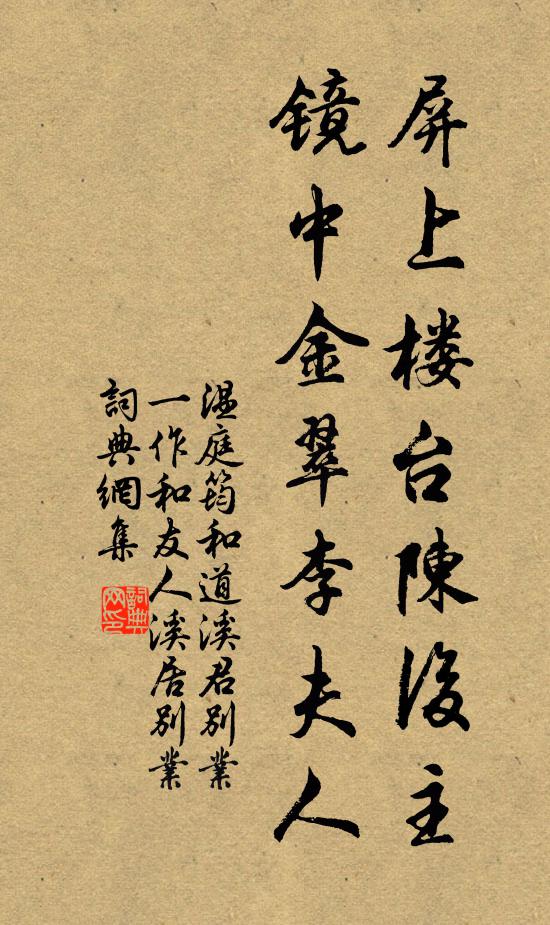 屏上楼台陳後主
镜中金翠李夫人
温庭筠和道溪君別業
一作和友人溪居別業
詞典網集
詞典网印